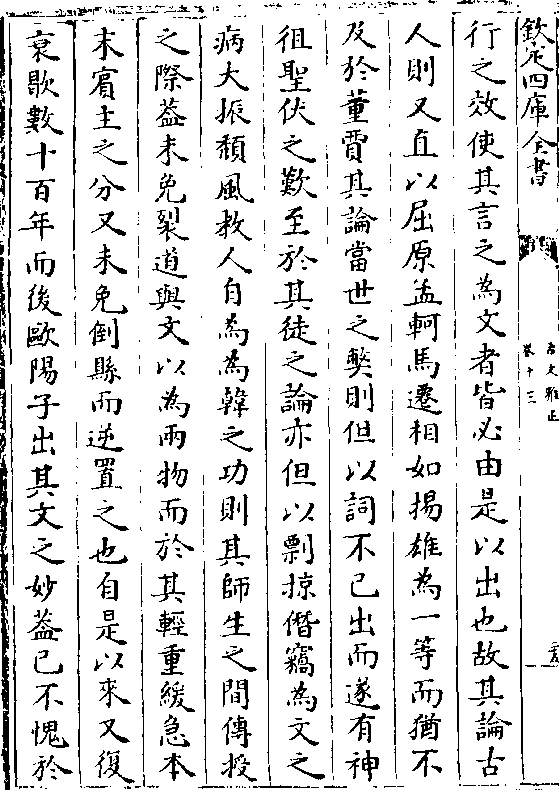 欽定四庫全書
古文雅正
卷十三
行之效使其言之為文者皆必由是以出也故其論古
人則又直以屈原孟軻馬遷相如揚雄為一等而猶不
及於董賈其論當世之弊則但以詞不已出而遂有神
徂聖伏之歎至於其徒之論亦但以剽掠僭竊為文之
病大振頽風教人自為為韓之功則其師生之間傳授
之際葢未免裂道與文以為兩物而於其輕重緩急本
末賓主之分又未免倒縣而逆置之也自是以來又復
衰歇數十百年而後歐陽子出其文之妙葢已不愧於